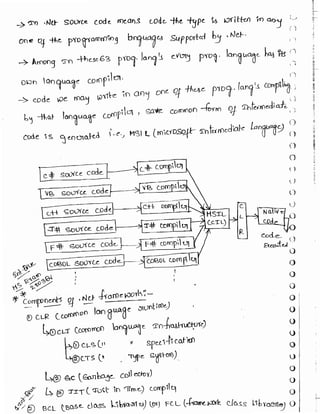 → In .Net source code means code the type is written in any
one of the programming languages supported by .Net.
→ Among In these 63 prog. lang's every prog. language has its
own language compiler.
→ code we may write in any one of these prog. lang's compiling
by that language compiler, some common form of Intermediate
code is generated i.e., MSIL (microsoft Intermediate Language)
C# source code → C# compiler
VB source code → VB compiler
C++ source code → C++ compiler
J# source code → J# compiler
F# source code → F# compiler
COBOL source code → COBOL compiler
MSIL (CIL)
C L R
Native code
code Executed
* Components of .Net framework:-
① CLR (common language runtime)
↳① CLI (common language Infrastructure)
↳① CLS (" " specification)
↳② CTS (" Type System)
↳② GC (Garbage collector)
↳③ JIT (Just in Time) compiler
② BCL (Base class Libraries) (or) FCL (framework class libraries)